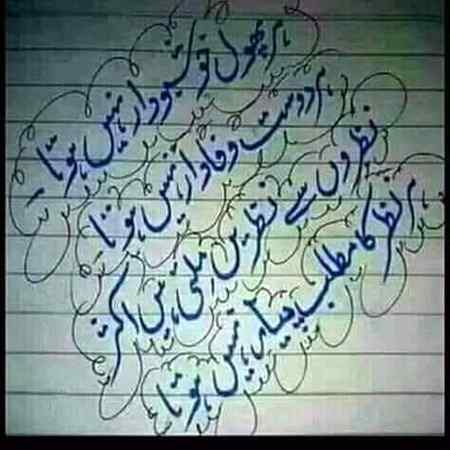 ہر پھول خوشبودار نہیں ہوتا
ہر دوست وفادار نہیں ہوتا
نظروں سے نظریں ملتی ہیں اکثر
ہر نظر کا مطلب پیار نہیں ہوتا